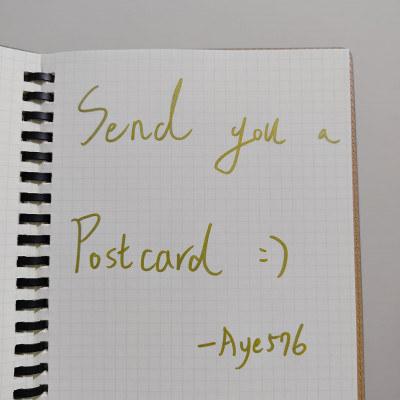 Send you a
Postcard =)
-Aye576